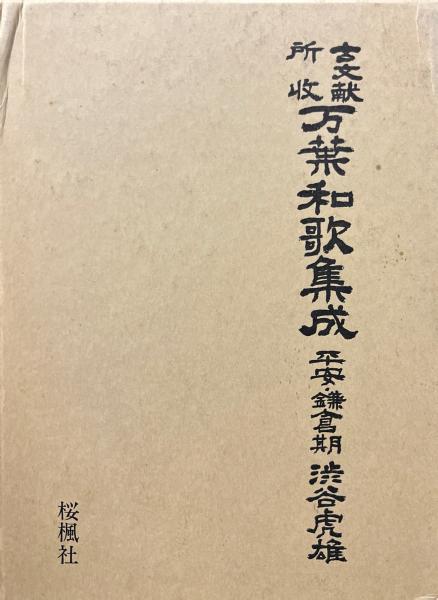 古文献
所収
万葉和歌集成 平安・鎌倉期 渋谷虎雄
桜楓社